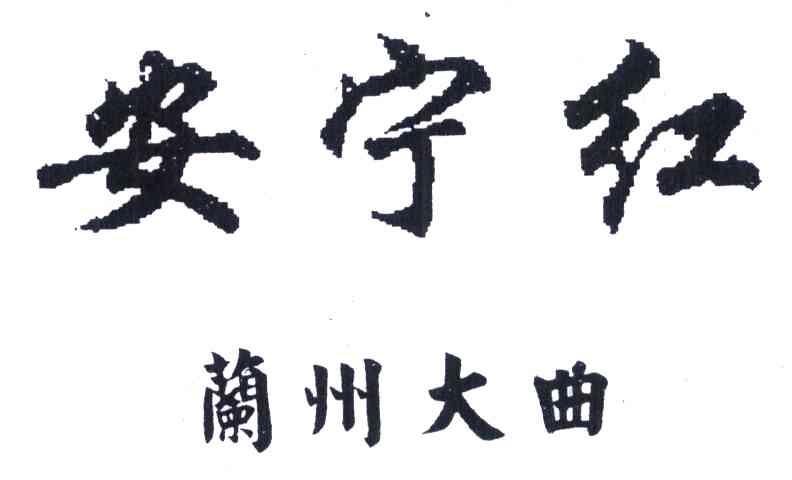 安宁红
蘭州大曲